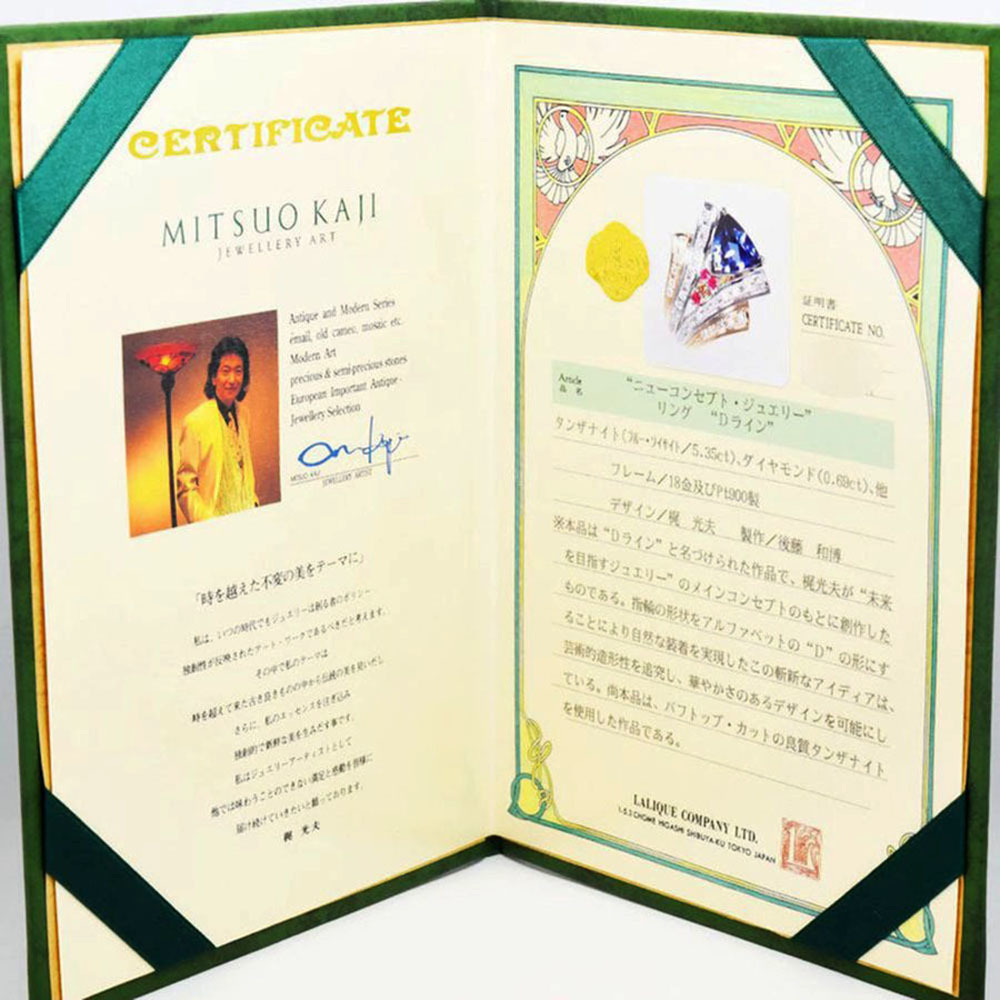 CERTIFICATE
MITSUO KAJI
JEWELLERY ART
Antique and Modern Series
émail, old cameo, mosaic etc.
Modern Art
precious & semi-precious stones
European Important Antique -
Jewellery Selection
MITSUO KAJI
JEWELLERY ARTIST
「時を越えた不変の美をテーマに」
私は、いつの時代でもジュエリーは創る者のポリシー
独創性が反映されたアート・ワークであるべきだと考えます。
その中で私のテーマは
時を超えて来た古き良きものの中から伝統の美を見いだし
さらに、私のエッセンスを注ぎ込み
独創的で新鮮な美を生みだす事です。
私はジュエリーアーティストとして
他では味わうことのできない満足と感動を皆様に
届け続けていきたいと願っております。
梶 光夫
証明書
CERTIFICATE NO.
Article
品名
“ニューコンセプト・ジュエリー”
リング “Dライン”
タンザナイト(ブルー・ゾイサイト/5.35ct)、ダイヤモンド(0.69ct)、他
フレーム/18金及びPt900製
デザイン/梶 光夫 製作/後藤 和博
※本品は“Dライン”と名づけられた作品で、梶光夫が“未来
を目指すジュエリー”のメインコンセプトのもとに創作した
ものである。指輪の形状をアルファベットの“D”の形にす
ることにより自然な装着を実現したこの斬新なアイディアは、
芸術的造形性を追究し、華やかさのあるデザインを可能にし
ている。尚本品は、バフトップ・カットの良質タンザナイト
を使用した作品である。
LALIQUE COMPANY LTD.
1.5.2 CHOME HIGASHI SHIBUYA-KU TOKYO JAPAN